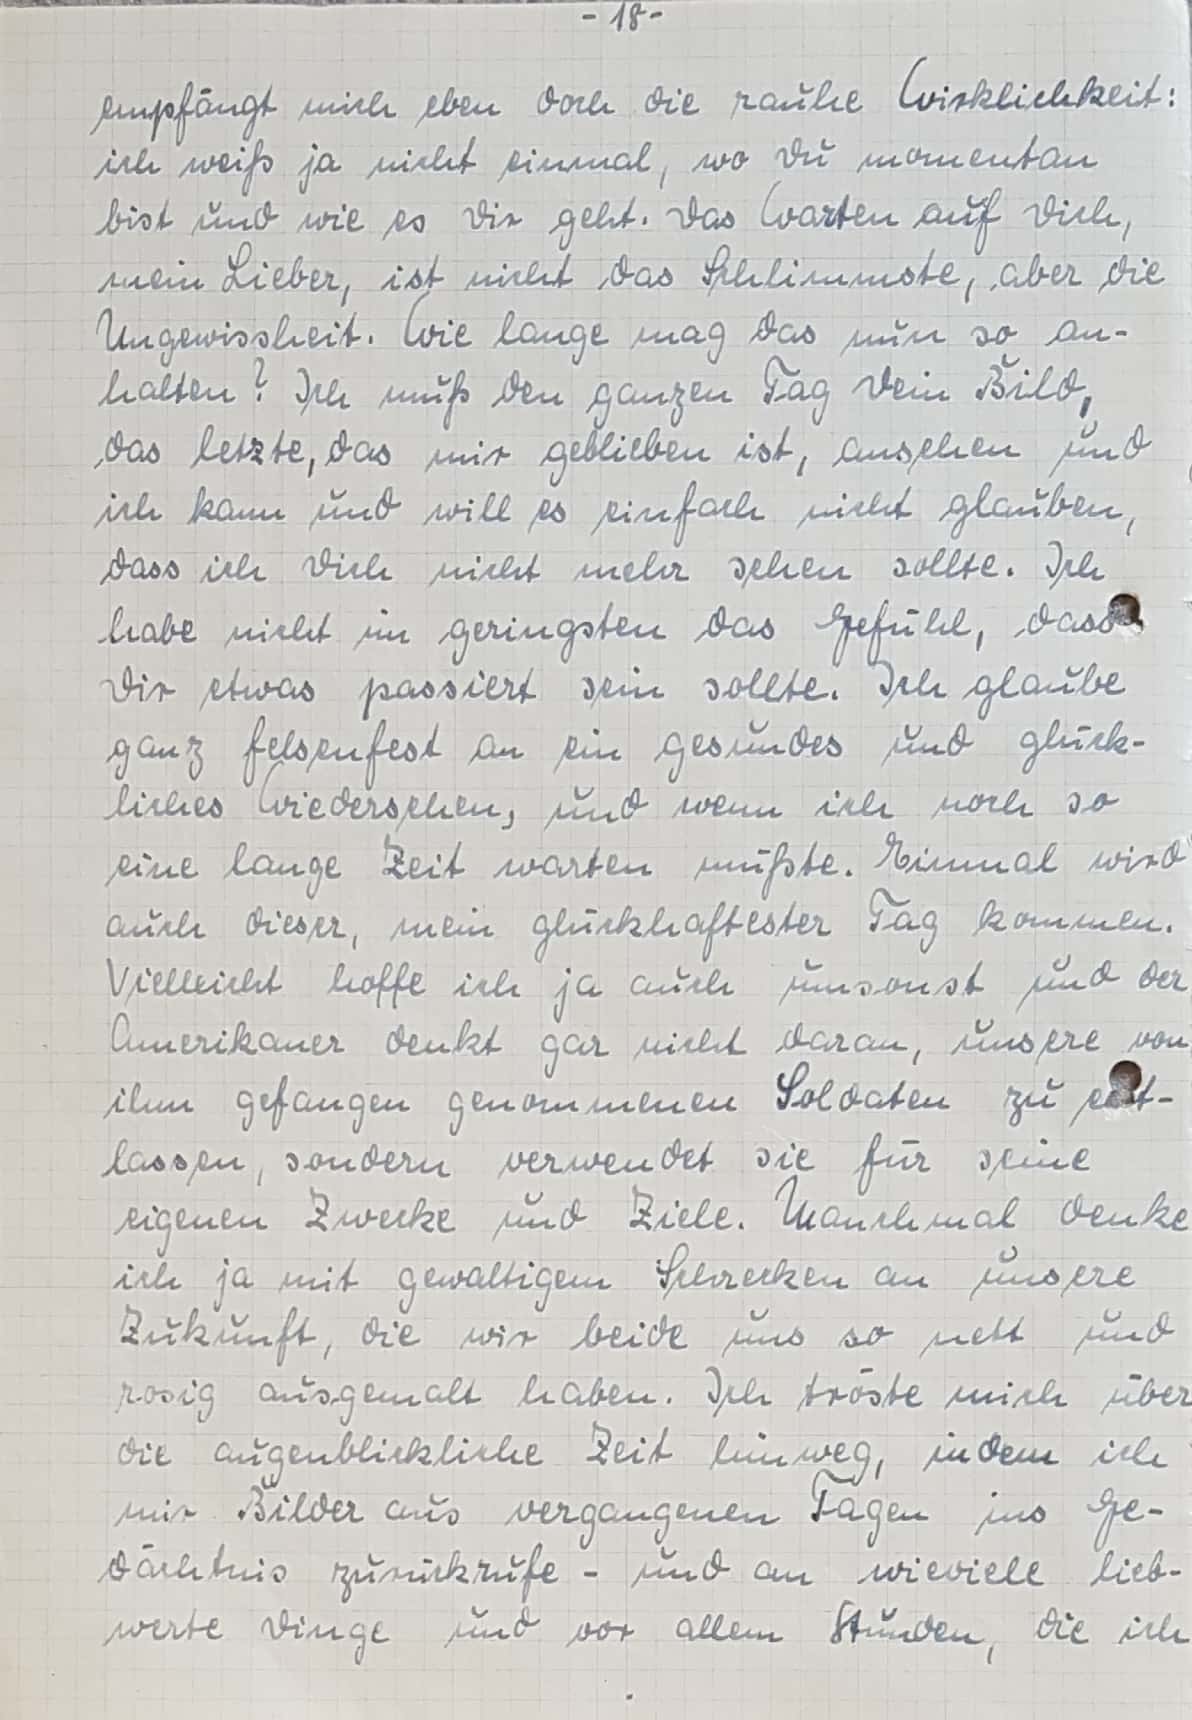 - 18 -
empfängt mich eben doch die rauhe Wirklichkeit:
ich weiß ja nicht einmal, wo Du momentan
bist und wie es Dir geht. Das Warten auf Dich,
mein Lieber, ist nicht das Schlimmste, aber die
Ungewissheit. Wie lange mag das nun so an-
halten? Ich muß den ganzen Tag Dein Bild,
das letzte, das mir geblieben ist, ansehen und
ich kann und will es einfach nicht glauben,
dass ich Dich nicht mehr sehen sollte. Ich
habe nicht im geringsten das Gefühl, dass
Dir etwas passiert sein sollte. Ich glaube
ganz felsenfest an ein gesundes und glück-
liches Wiedersehen, und wenn ich noch so
eine lange Zeit warten müßte. Einmal wird
auch dieser, mein glückhaftester Tag kommen.
Vielleicht hoffe ich ja auch umsonst und der
Amerikaner denkt gar nicht daran, unsere von
ihm gefangen genommenen Soldaten zu ent-
lassen, sondern verwendet sie für seine
eigenen Zwecke und Ziele. Manchmal denke
ich ja mit gewaltigem Schrecken an unsere
Zukunft, die wir beide uns so nett und
rosig ausgemalt haben. Ich tröste mich über
die augenblickliche Zeit hinweg, indem ich
mir Bilder aus vergangenen Tagen ins Ge-
dächtnis zurückrufe - und an wieviele lieb-
werte Dinge und vor allem Stunden, die ich